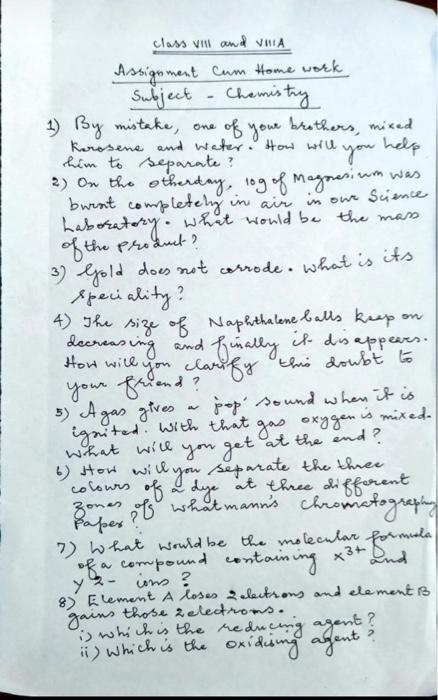 Class VIII and VIIIA
Assignment Cum Home work
Subject - Chemistry
1) By mistake, one of your brothers, mixed
Kerosene and Water. How will you help
him to separate?
2) On the otherday, 10g of Magnesium was
burnt completely in air in our Science
Laboratory. What would be the mass
of the product?
3) Gold does not corrode. What is its
speciality?
4) The size of Naphthalene balls keep on
decreasing and finally it disappears.
How will you clarify this doubt to
your friend?
5) A gas gives a 'pop' sound when it is
ignited. With that gas oxygen is mixed.
What will you get at the end?
6) How will you separate the three
colours of a dye at three different
zones of Whatmann's Chromatography
Paper?
7) What would be the molecular formula
of a compound containing x3+ and
y2- ions?
8) Element A loses 2 electrons and element B
gains those 2 electrons.
i) which is the reducing agent?
ii) Which is the oxidising agent?